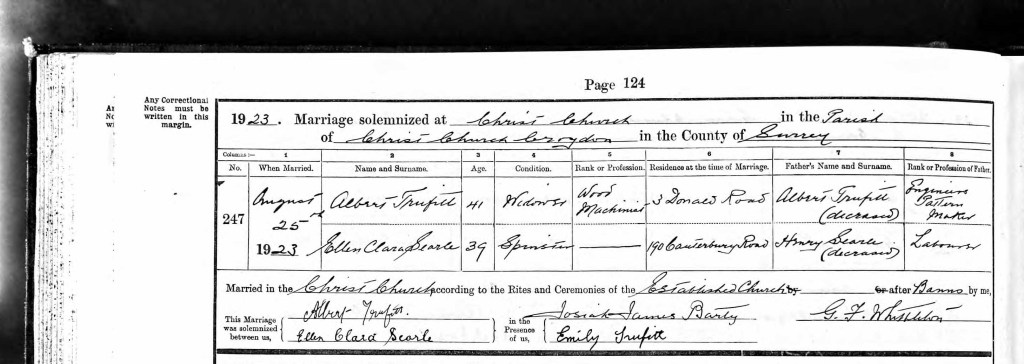 Page 124
Any Correctional
Notes must be
written in this
margin.
1923. Marriage solemnized at Christ Church in the Parish
of Christ Church Croydon in the County of Surrey
Columns :— 1 2 3 4 5 6 7 8
No. When Married. Name and Surname. Age. Condition. Rank or Profession. Residence at the time of Marriage. Father's Name and Surname. Rank or Profession of Father.
247 August 25 1923
Albert Trufitt 41 Widower Wood Machinist 3 Donald Road Albert Trufitt (deceased) Engineers Pattern Maker
Ellen Clara Searle 39 Spinster —— 190 Canterbury Road Henry Searle (deceased) Labourer
Married in the Christ Church according to the Rites and Ceremonies of the Established Church by or after Banns by me,
This Marriage was solemnized between us,
Albert Trufitt
Ellen Clara Searle
in the Presence of us,
Josiah James
Emily Trufitt
G. F.